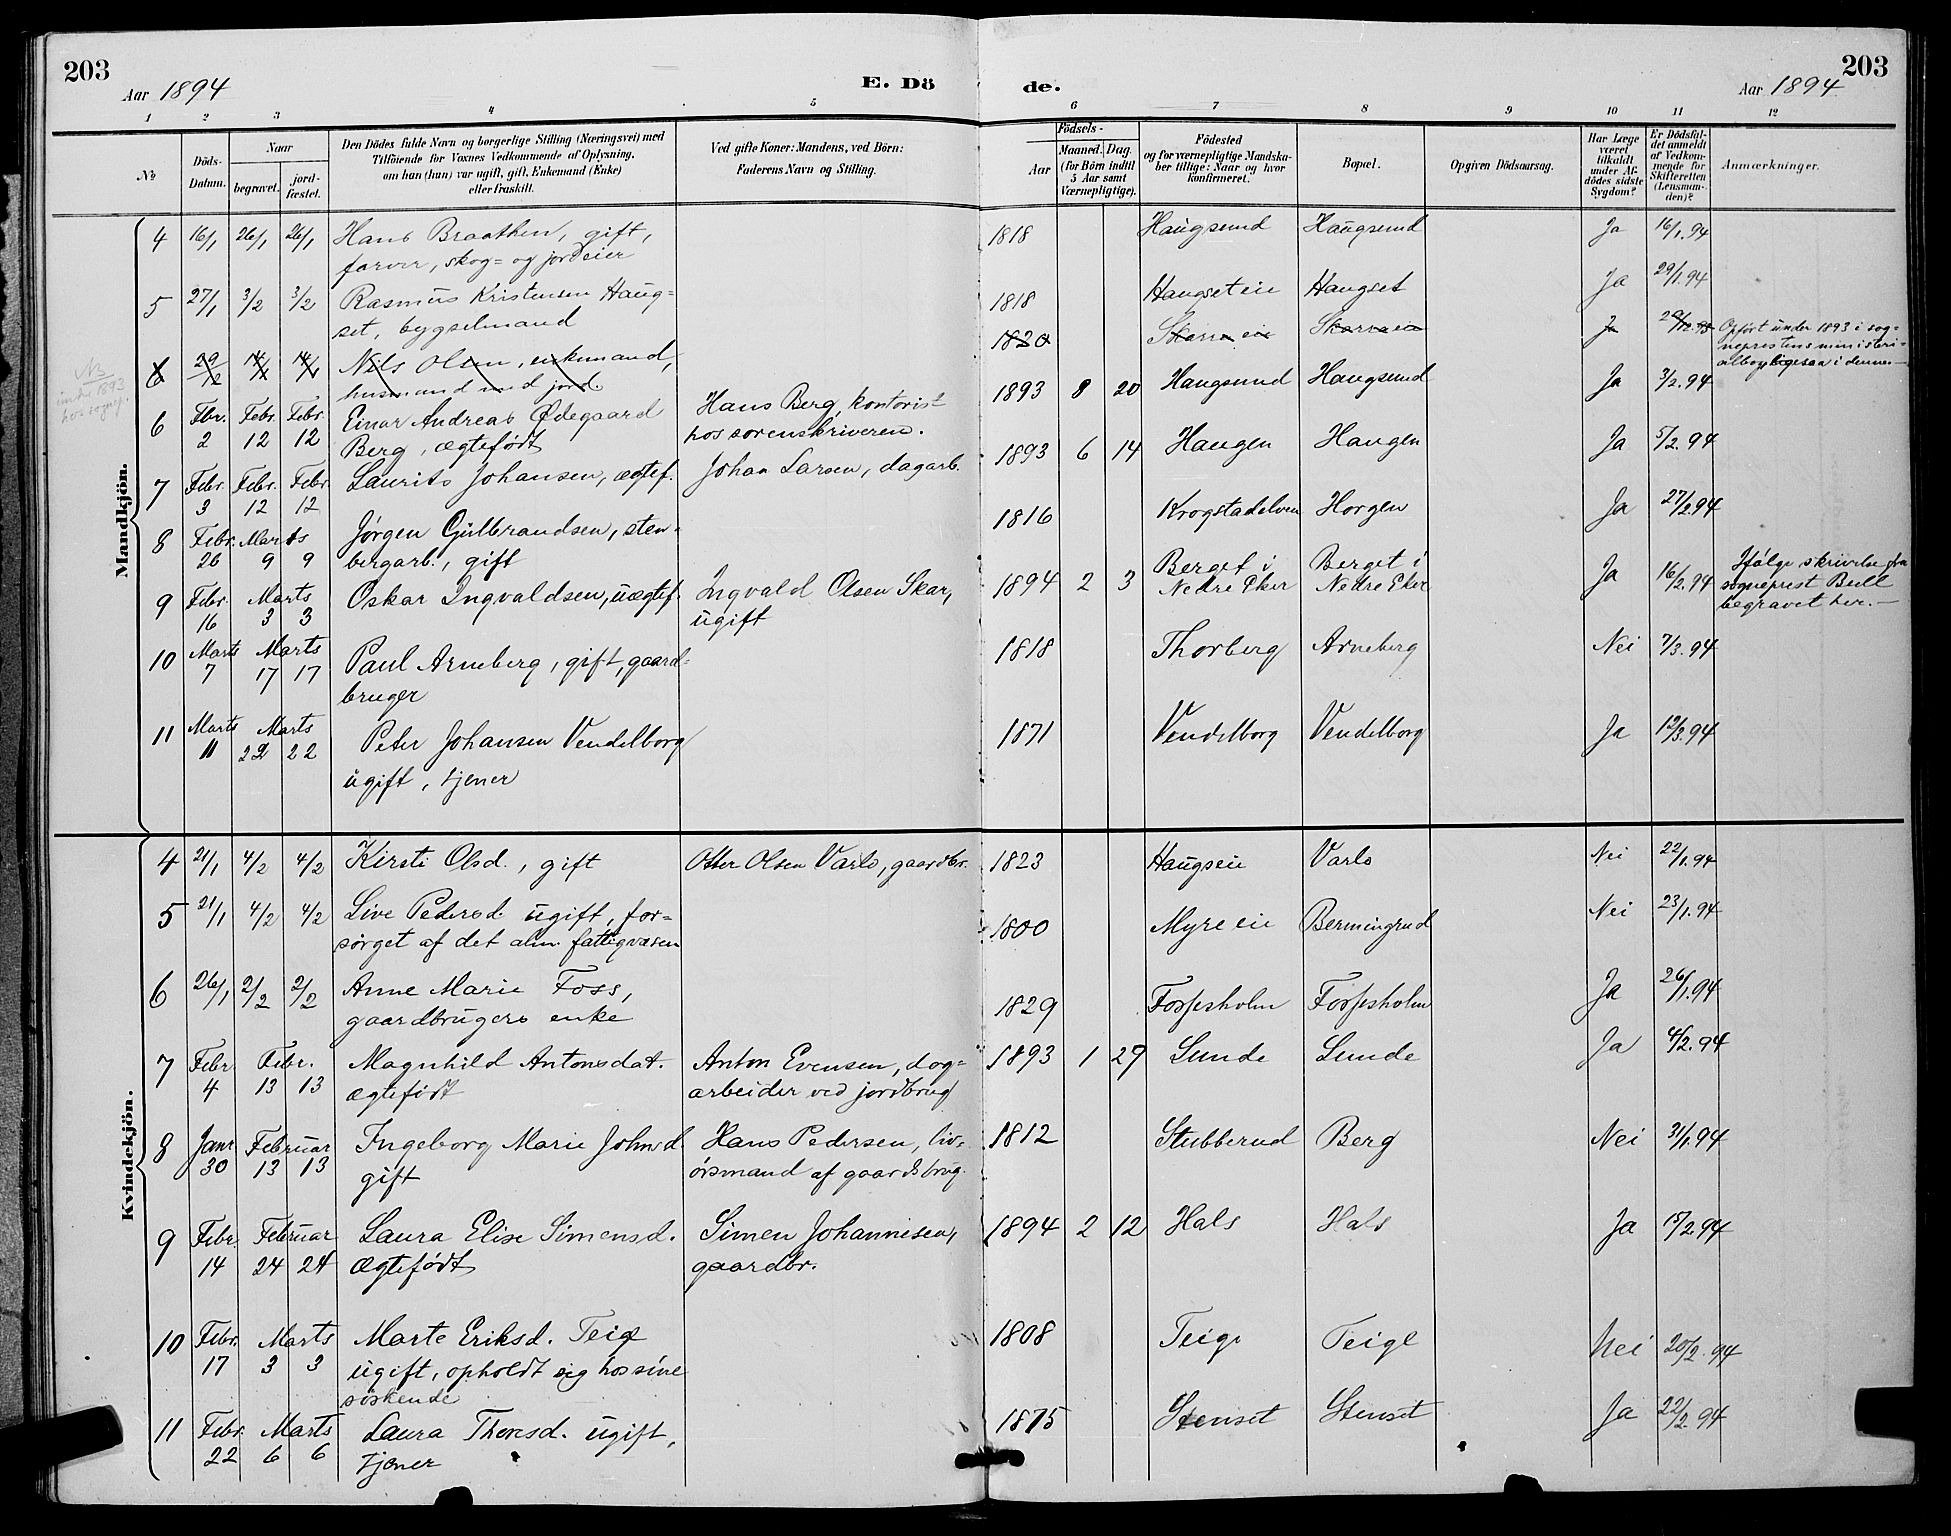 203
Aar 1894
E. Dö
de.
Aar 1894
203
1 2 3 4 5 6 7 8 9 10 11 12
No
Döds-
Datum.
Naar
begravet.
jord-
fæstet.
Den Dödes fulde Navn og borgerlige Stilling (Næringsvei) med
Tilföiende for Voxnes Vedkommende af Oplysning,
om han (hun) var ugift, gift, Enkemand (Enke)
eller fraskilt.
Ved gifte Koner: Mandens, ved Börn:
Faderens Navn og Stilling.
Födsels-
Aar
Maaned. Dag.
(for Börn indtil
5 Aar samt
Værnepligtige).
Födested
og for værnepligtige Mandska-
ber tillige: Naar og hvor
konfirmeret.
Bopæl.
Opgiven Dödsaarsag.
Har Læge
været
tilkaldt
under Af-
dödes sidste
Sygdom?
Er Dödsfal-
det anmeldt
af Vedkom-
mende for
Skifteretten
(Lensman-
den)?
Anmærkninger.
Mandkjön.
4 16/1 26/1 26/1 Hans Braathen, gift, 1818 Haugsund Haugsund Ja 16/1.94
farver, skog= og jordeier
5 27/1 3/2 3/2 Rasmus Kristensen Haug= 1818 Haugseteie Haugset Ja 29/1.94
set, bygselmand
6 29/12 14/1 14/1 Nils Olsen, enkemand, 1820 Skarra eie Skarra eie Ja 29/12.93 Opført under 1893 i sog-
husmand med jord. neprestens ministeri-
albog ligesaa i denne
NB
under 1893
hos sognep.
6 Fbr. 2 Febr. 12 Febr. 12 Einar Andreas Ødegaard Hans Berg, kontorist 1893 8 20 Haugsund Haugsund Ja 3/2.94
Berg, ægtefødt hos sorenskriveren.
7 Febr. 3 Febr. 12 Febr. 12 Laurits Johansen, ægtef. Johan Larsen, dagarb. 1893 6 14 Haugen Haugen Ja 5/2.94
8 Febr. 26 Marts 9 9 Jørgen Gulbrandsen, sten- 1816 Krogstadelven Horgen Ja 27/2.94
bergarb., gift
9 Febr. 16 Marts 3 3 Oskar Ingvaldsen, uægtef. Ingvald Olsen Skar, 1894 2 3 Berget i Berget i Ja 16/2.94 Ifølge skrivelse fra
ugift Nedre Eker Nedre Eker sogneprest Bull
begravet her.—
10 Marts 7 Marts 17 17 Paul Arneberg, gift, gaard= 1818 Thorberg Arneberg Nei 7/3.94
bruger
11 Marts 11 Marts 22 22 Peter Johansen Vendelborg 1871 Vendelborg Vendelborg Ja 12/3.94
ugift, tjener
Kvindekjön.
4 21/1 4/2 4/2 Kirsti Olsd., gift Otter Olsen Varlo, gaardbr. 1823 Haugseie Varlo Nei 22/1.94
5 21/1 4/2 4/2 Live Pedersd. ugift, for= 1800 Myre eie Bermingrud Nei 23/1.94
sørget af det alm. fattigvæsen
6 26/1 2/2 2/2 Anne Marie Foss, 1829 Fossesholm Fossesholm Ja 26/1.94
gaardbrugers enke
7 Febr. 4 Febr. 13 13 Magnhild Antonsdat. Anton Evensen, dag= 1893 1 29 Lunde Lunde Ja 4/2.94
ægtefødt arbeider ved jordbrug
8 Janr. 30 Februar 13 13 Ingeborg Marie Johnsd. Hans Pedersen, liv- 1812 Stubberud Berg Nei 31/1.94
gift ørsmand af gaardsbrug.
9 Febr. 14 Februar 24 24 Laura Elise Simensd. Simen Johannisen, 1894 2 12 Hals Hals Ja 15/2.94
ægtefødt gaardbr.
10 Febr. 17 Marts 3 3 Marte Eriksd. Teige 1808 Teige Teige Nei 20/2.94
ugift, opholdt sig hos sine
søskende
11 Febr. 22 Marts 6 6 Laura Thoresd. ugift, 1875 Stenset Stenset Ja 22/2.94
tjener